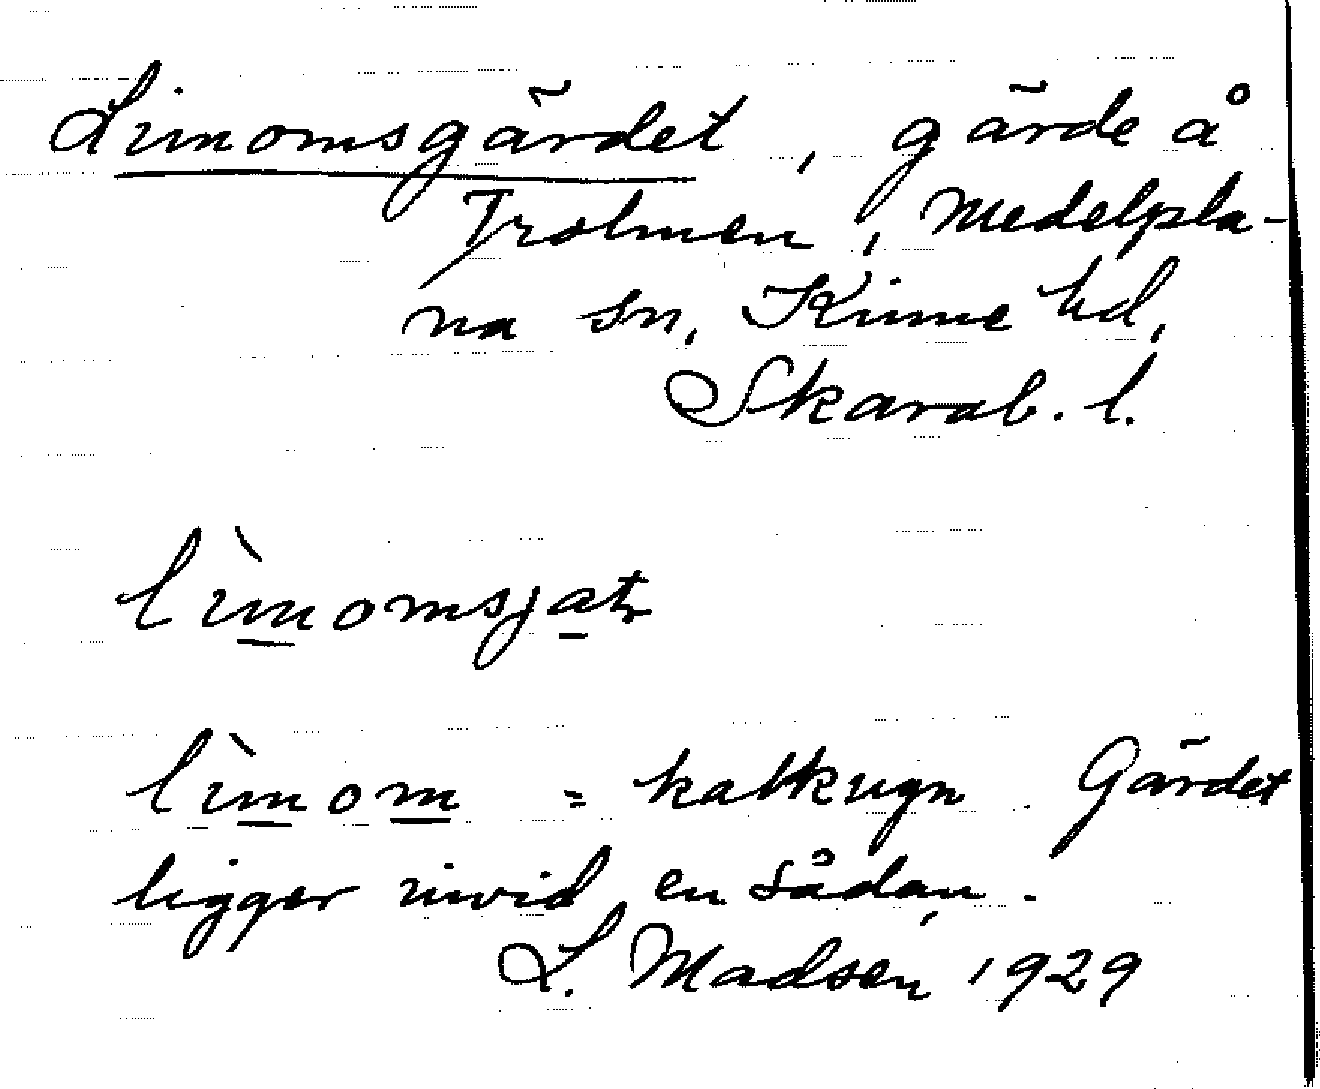 Limomsgärdet, gärde å
Trolmen, Medelpla-
na sn, Kinne hd,
Skarab. l.
lìmomsjat
lìmom = kalkugn. Gärdet
ligger invid en sådan.
L. Madsen 1929